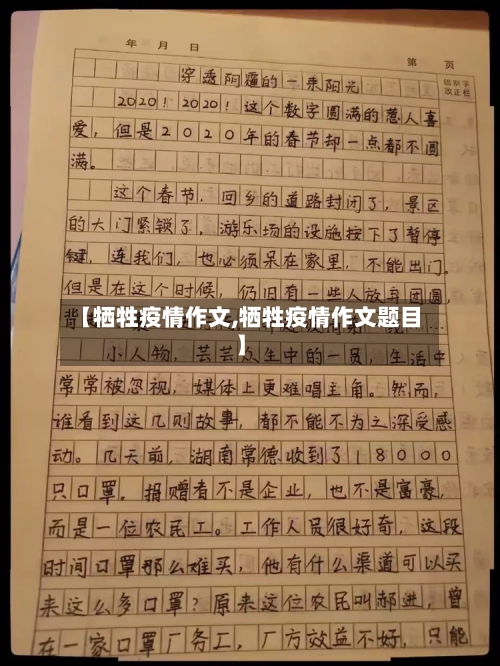 年 月 日
第 页
错别字
改正栏
穿透阴霾的一束阳光
2020！2020！这个数字圆满的惹人喜
爱，但是2020年的春节却一点都不圆
满。
这个春节，回乡的道路封闭了，景区
的大门紧锁了，游乐场的设施按下了暂停
键，连我们，也必须呆在家里，不能出门。
但是在这个时候，仍旧有一些人放弃团圆，
背
【牺牲疫情作文,牺牲疫情作文题目
】
小人物，芸芸众生中的一员，生活中
常常被忽视，媒体上更难唱主角。然而，
谁看到这几则故事，都不能不为之深受感
动。几天前，湖南常德收到了18000
只口罩。捐赠者不是企业，也不是富豪，
而是一位农民工。工作人员很好奇，这段
时间口罩那么难买，他有什么渠道可以买
来这么多口罩？原来这位农民叫郝进，曾
在一家口罩厂务工，厂方效益不好，只能